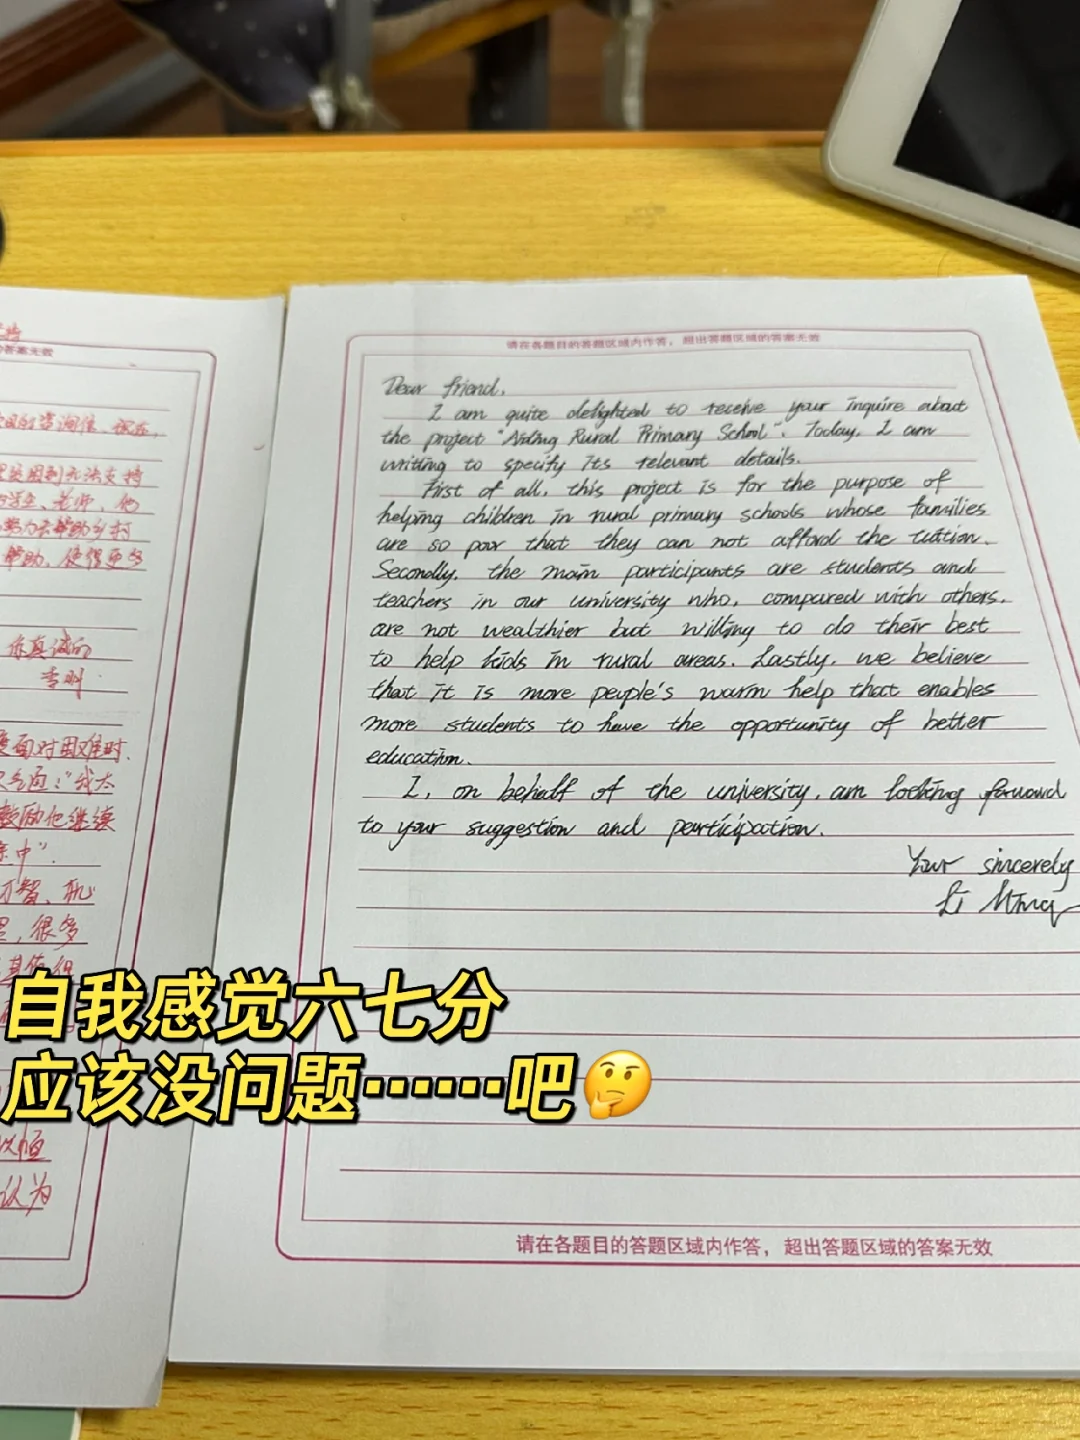 答案无效
无法支持
老师、他
努力去帮助乡村
帮助,使得更多
你真诚的
李明
面对困难时,
鼓励他继续
很多
认为
请在各题目的答题区域内作答,超出答题区域的答案无效
Dear friend,
I am quite delighted to receive your inquire about
the project "Aiding Rural Primary School". Today, I am
writing to specify its relevant details.
First of all, this project is for the purpose of
helping children in rural primary schools whose families
are so poor that they can not afford the tuition.
Secondly, the main participants are students and
teachers in our university who, compared with others,
are not wealthier but willing to do their best
to help kids in rural areas. Lastly, we believe
that it is more people's warm help that enables
more students to have the opportunity of better
education.
I, on behalf of the university, am looking forward
to your suggestion and participation.
Your sincerely
Li Ming
自我感觉六七分
应该没问题……吧🤔
请在各题目的答题区域内作答,超出答题区域的答案无效